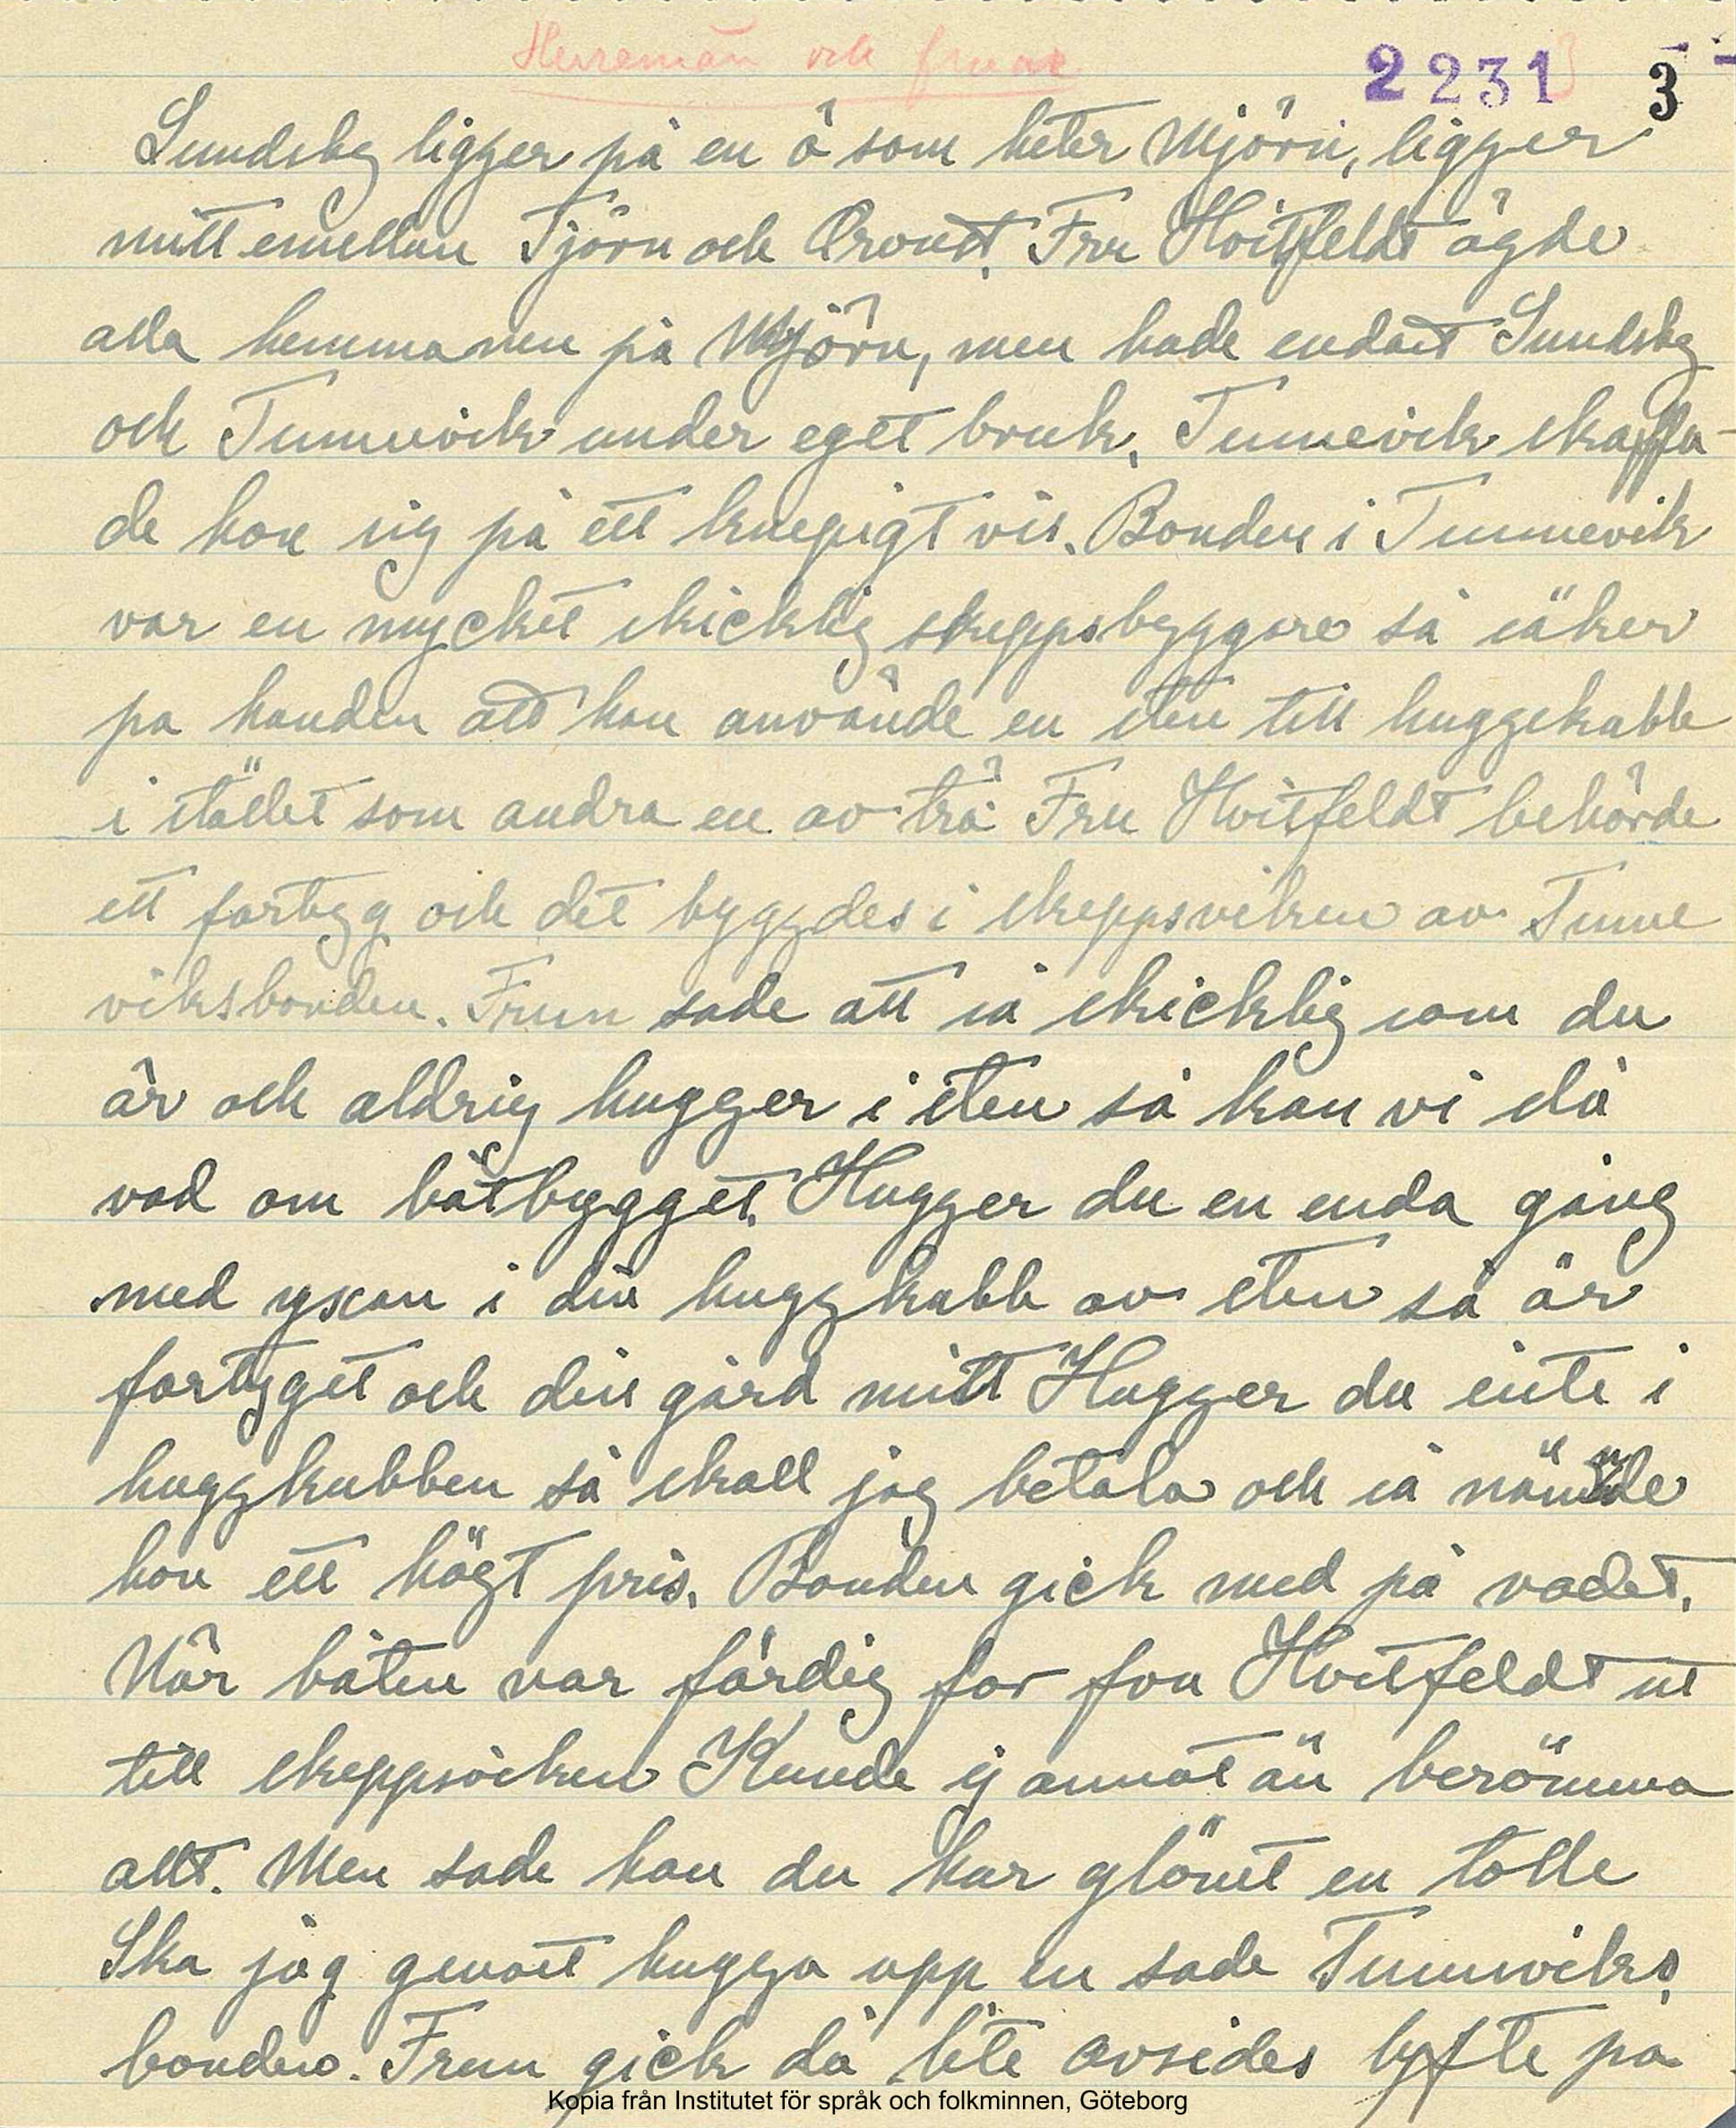 Herremän och fruar
2231 3
Sundsby ligger på en ö som heter Mjörn, ligger
mitt emellan Tjörn och Oroust. Fru Hvitfeldt ägde
alla hemmanen på Mjörn, men hade endast Sundsby
och Tunnevik under eget bruk. Tunnevik skaffa-
de hon sig på ett knepigt vis. Bonden i Tunnevik
var en mycket skicklig skeppsbyggare så säker
pa handen att han använde en sten till huggekabb
i stället som andra en av trä. Fru Hvitfeldt behörde
ett fartyg och det byggdes i skeppsviken av Tunne
viksbonden. Frun sade att så skicklig som du
är och aldrig hugger i sten så kan vi slå
vad om båtbygget. Hugger du en enda gång
med yxan i din huggkabb av sten så är
fartyget och din gård mitt Hugger du inte i
huggkubben så skall jag betala och så nämde
hon ett högt pris. Bonden gick med på vadet.
När båten var färdig for fru Hvitfeldt ut
till skeppsviken Kunde ej annat än berömma
allt. Men sade hon du har glömt en tolle
Ska jag genast hugga upp en sade Tunneviks
bonden. Frun gick då lite avsides lyfte pa
Kopia från Institutet för språk och folkminnen, Göteborg